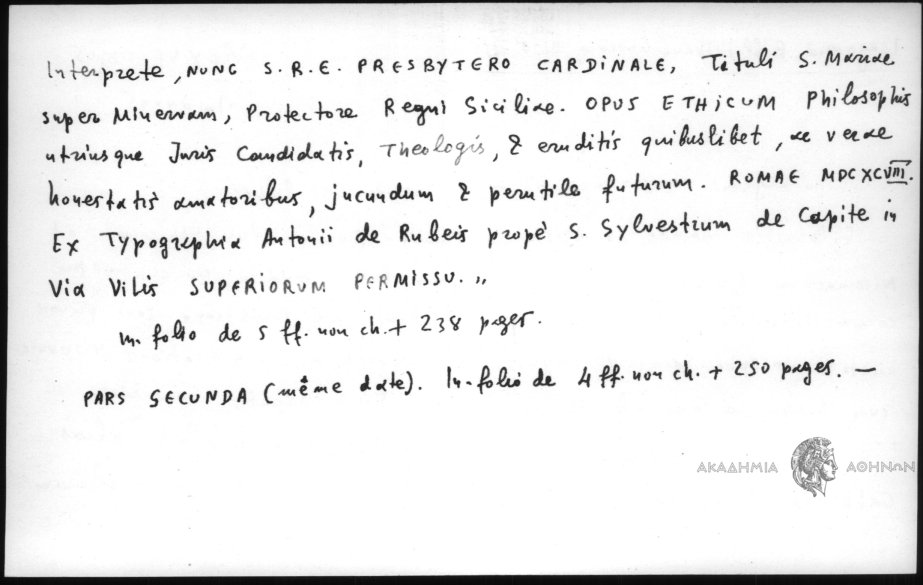 Interprete, NUNC S.R.E. PRESBYTERO CARDINALE, Tituli S. Mariae
super Minervam, Protectore Regni Siciliae. OPUS ETHICUM Philosophis
utriusque Juris Candidatis, Theologis, & eruditis quibuslibet, ac verae
honestatis amatoribus, jucundum & perutile futurum. ROMAE MDCXCVIII.
Ex Typographia Antonii de Rubeis propè S. Sylvestrum de Capite in
Via Vitis SUPERIORUM PERMISSU. „
in-folio de 5 ff. non ch. + 238 pages.
PARS SECUNDA (même date). In-folio de 4 ff. non ch. + 250 pages. —
ΑΚΑΔΗΜΙΑ ΑΘΗΝΩΝ